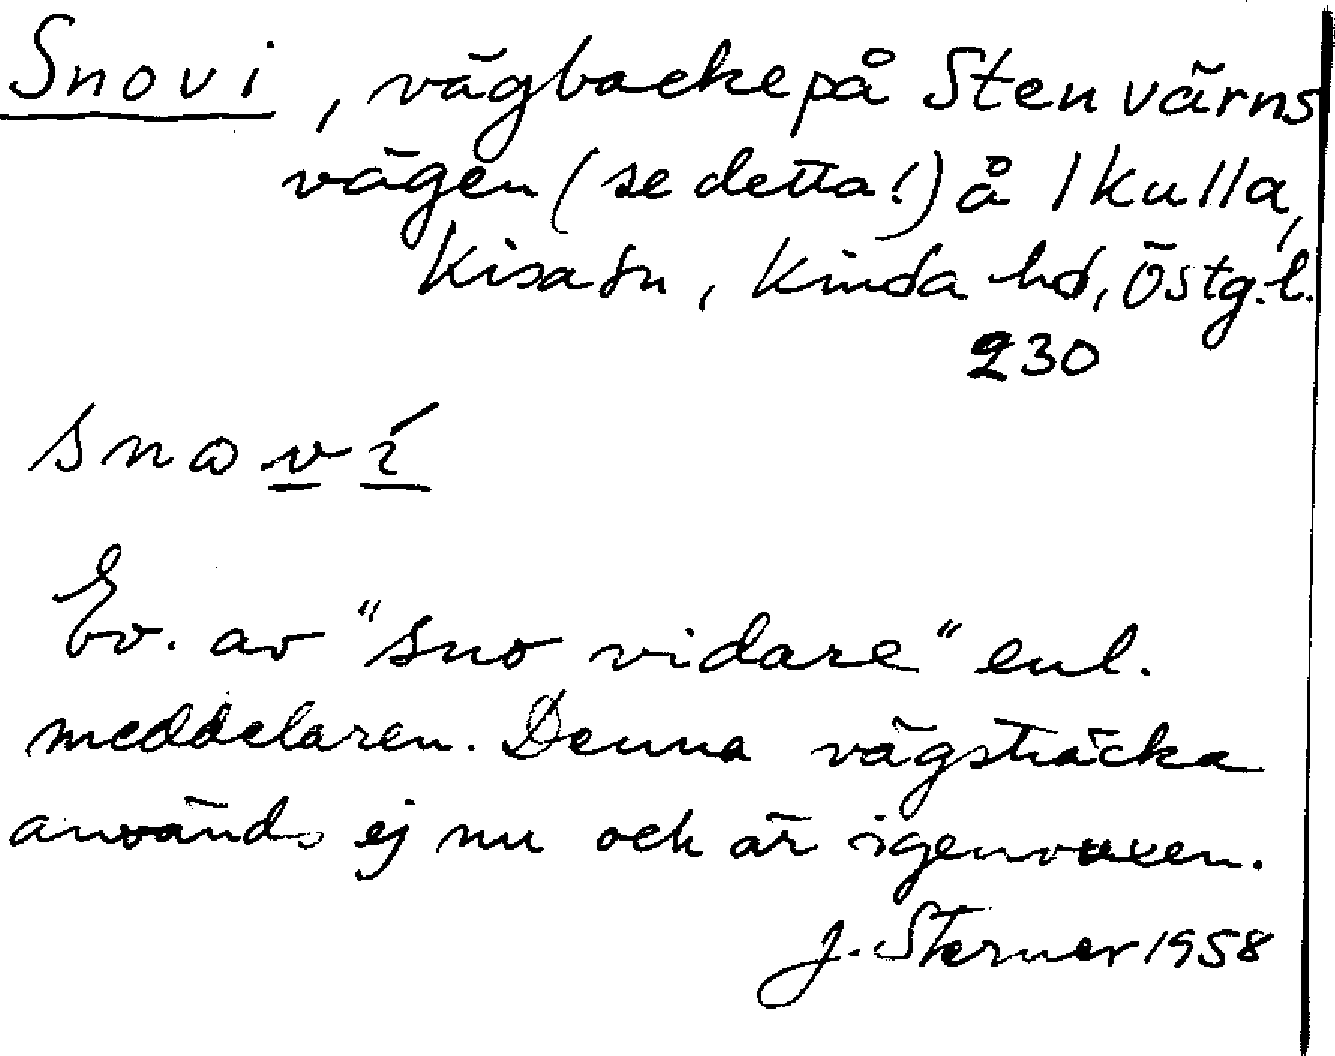 Snovi, vägbacke på Stenvärns
vägen (se detta!) å Ikulla,
Kisa sn, Kinda hd, Östg.l.
230
snovi
Ev. av "sno vidare" enl.
meddelaren. Denna vägsträcka
används ej nu och är igenvuxen.
J. Sterner 1958